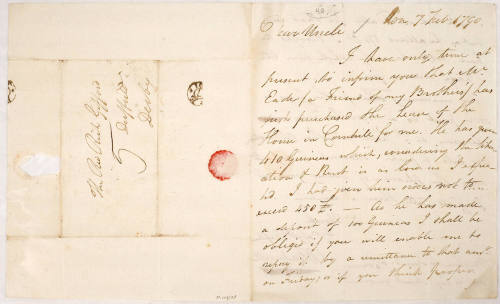 The Rev. Rich.d Gifford
Duffield
Derby
Dear Uncle
Lon. 7 Feb. 1790.
I have only time at
present to inform you that Mr
Eade (a Friend of my Brothers) has
just purchased the Lease of the
House in Cornhill for me. He has given
410 Guineas which, considering the Situ
ation & Rent is as low as I expec
ted. I had given him orders not to
exceed 450£. — As he has made
a deposit of 100 Guineas I shall be
obliged if you will enable me to
repay it by a remittance to that amt.
on Friday, or if you think proper